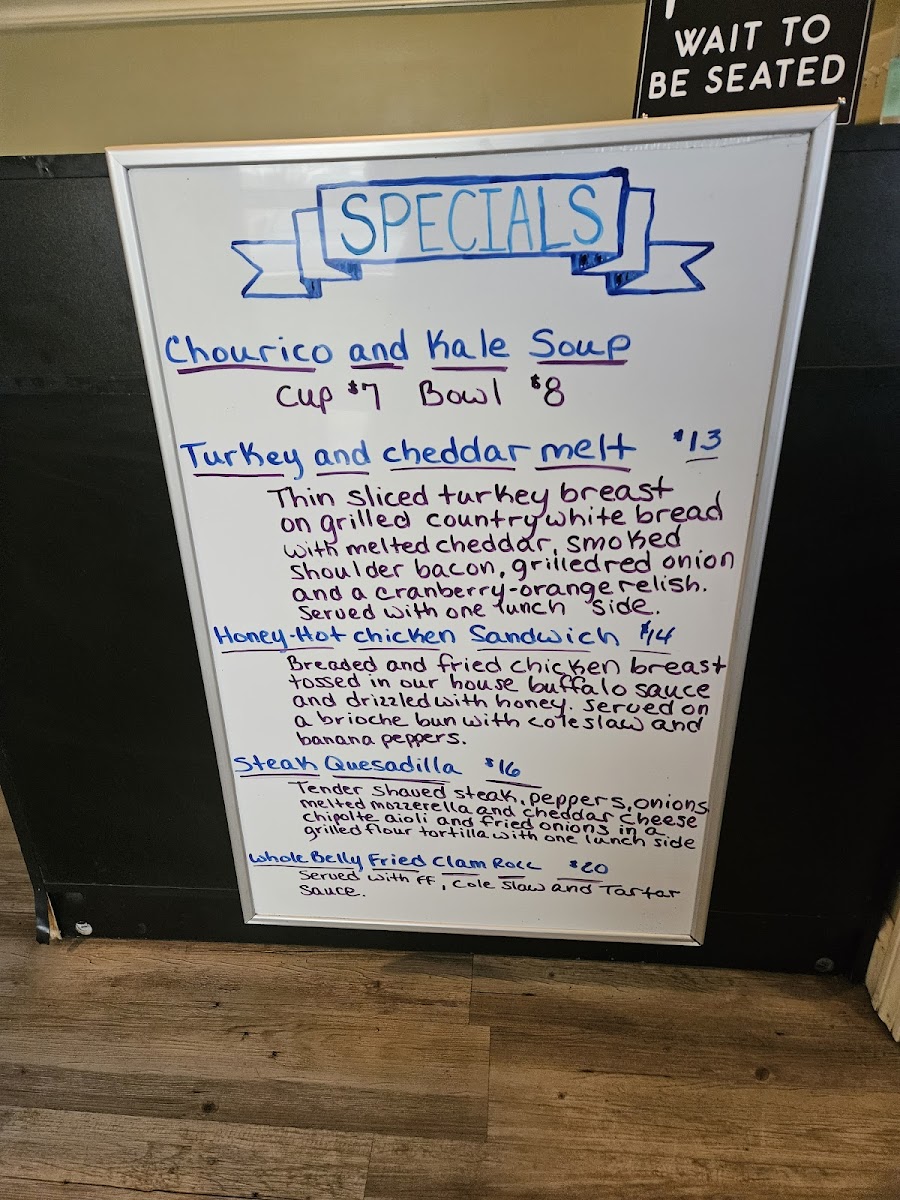 WAIT TO
BE SEATED
SPECIALS
Chourico and Kale Soup
Cup $7 Bowl $8
Turkey and cheddar melt $13
Thin sliced turkey breast
on grilled country white bread
with melted cheddar, smoked
shoulder bacon, grilled red onion
and a cranberry-orange relish.
Served with one lunch side.
Honey-Hot chicken Sandwich $14
Breaded and fried chicken breast
tossed in our house buffalo sauce
and drizzled with honey. Served on
a brioche bun with coleslaw and
banana peppers.
Steak Quesadilla $16
Tender shaved steak, peppers, onions,
melted mozzerella and cheddar cheese
chipolte aioli and fried onions in a
grilled flour tortilla with one lunch side
Whole Belly Fried Clam Roll $20
Served with FF, Cole Slaw and Tartar
Sauce.